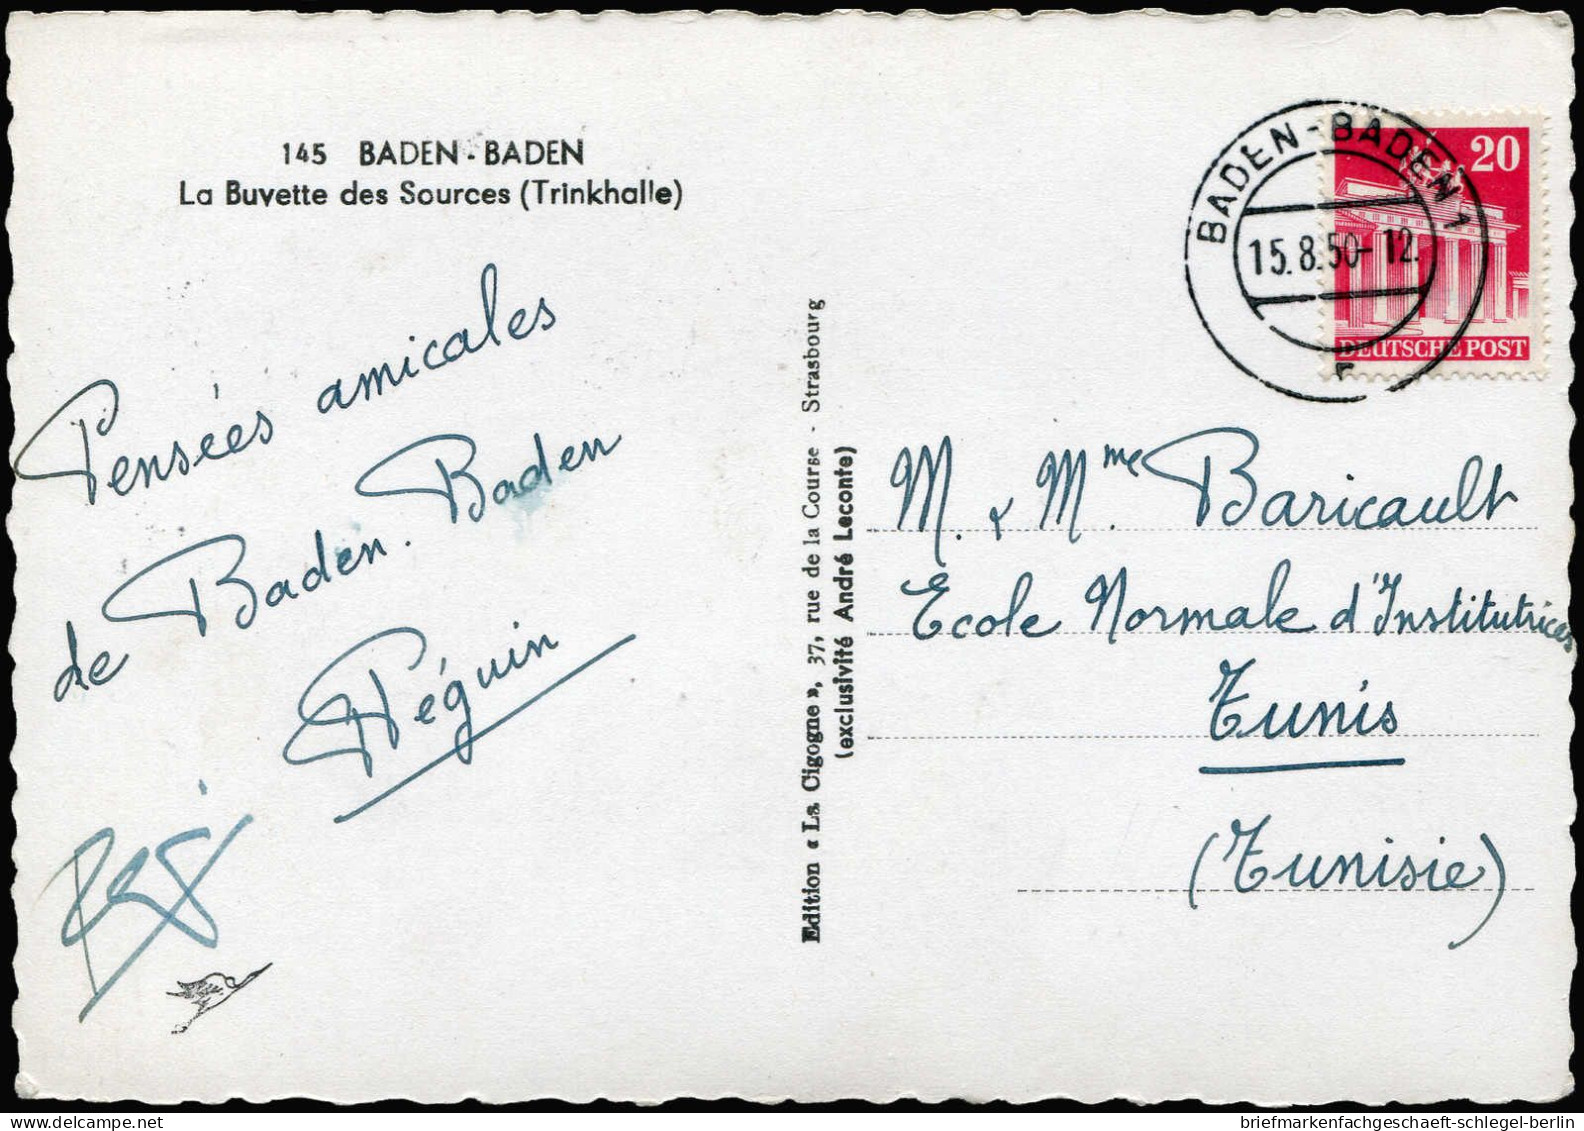 145 BADEN-BADEN
La Buvette des Sources (Trinkhalle)
Pensées amicales
de Baden-Baden
Péguin
Edition « La Cigogne », 37, rue de la Course - Strasbourg
(exclusivité André Leconte)
BADEN-BADEN 1
15.8.50-12.
20
DEUTSCHE POST
M. & Mme Baricault
Ecole Normale d'Institutrices
Tunis
(Tunisie)
briefmarkenfachgeschaeft-schlegel-berlin